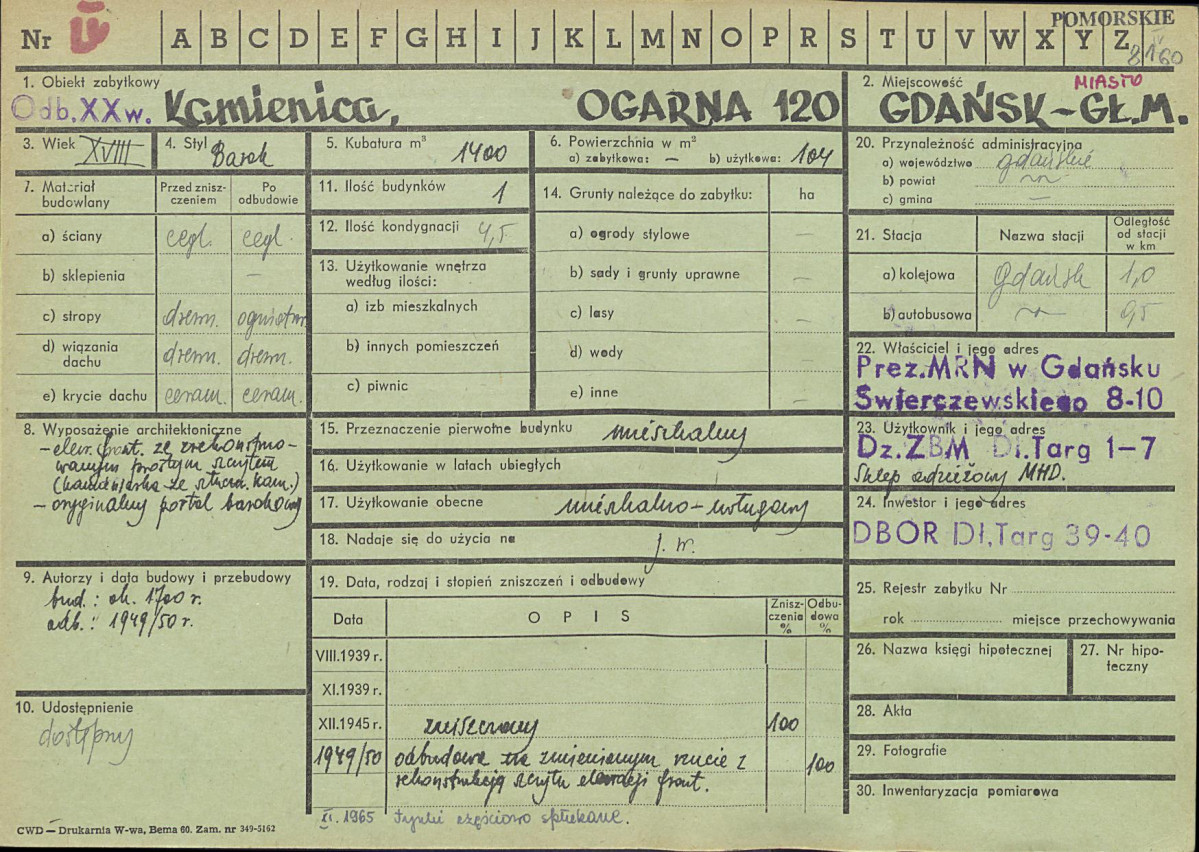 POMORSKIE
Nr IV A B C D E F G H I J K L M N O P R S T U V W X Y Z
8160
1. Obiekt zabytkowy
Odb. XX w. Kamienica, OGARNA 120
2. Miejscowość MIASTO
GDAŃSK-GŁ.M.
3. Wiek XVIII
4. Styl Barok
5. Kubatura m³ 1400
6. Powierzchnia w m²
a) zabytkowa: — b) użytkowa: 104
7. Materiał budowlany
Przed zniszczeniem
Po odbudowie
a) ściany cegl. cegl.
b) sklepienia —
c) stropy drewn. ogniotrw.
d) wiązania dachu drewn. drewn.
e) krycie dachu ceram. ceram.
8. Wyposażenie architektoniczne
- elew. front. ze zrekonstruo-
wanym prostym szczytem
(kamieniarka ze sztuczn. kam.)
- oryginalny portal barokowy
9. Autorzy i data budowy i przebudowy
bud.: ok. 1700 r.
odb.: 1949/50 r.
10. Udostępnienie
dostępny
11. Ilość budynków 1
12. Ilość kondygnacji 4,5
13. Użytkowanie wnętrza
według ilości:
a) izb mieszkalnych
b) innych pomieszczeń
c) piwnic
14. Grunty należące do zabytku: ha
a) ogrody stylowe —
b) sady i grunty uprawne —
c) lasy —
d) wody
e) inne —
15. Przeznaczenie pierwotne budynku mieszkalny
16. Użytkowanie w latach ubiegłych
17. Użytkowanie obecne mieszkalno-usługowy
18. Nadaje się do użycia na j. w.
19. Data, rodzaj i stopień zniszczeń i odbudowy
Data OPIS Zniszczenia % Odbudowa %
VIII.1939 r.
XI.1939 r.
XII.1945 r. zniszczony 100
1949/50 odbudowa na zmienionym rzucie z
rekonstrukcją szczytu elewacji front. 100
XI. 1965 Tynki częściowo spękane.
20. Przynależność administracyjna
a) województwo gdańskie
b) powiat
c) gmina —
21. Stacja Nazwa stacji Odległość od stacji w km
a) kolejowa Gdańsk 1,0
b) autobusowa 0,5
22. Właściciel i jego adres
Prez.MRN w Gdańsku
Swierczewskiego 8-10
23. Użytkownik i jego adres
Dz.ZBM Dl.Targ 1-7
Sklep odzieżowy MHD.
24. Inwestor i jego adres
DBOR Dł.Targ 39-40
25. Rejestr zabytku Nr
rok miejsce przechowywania
26. Nazwa księgi hipotecznej
27. Nr hipo-
teczny
28. Akta
29. Fotografie
30. Inwentaryzacja pomiarowa
CWD — Drukarnia W-wa, Bema 60. Zam. nr 349-5162